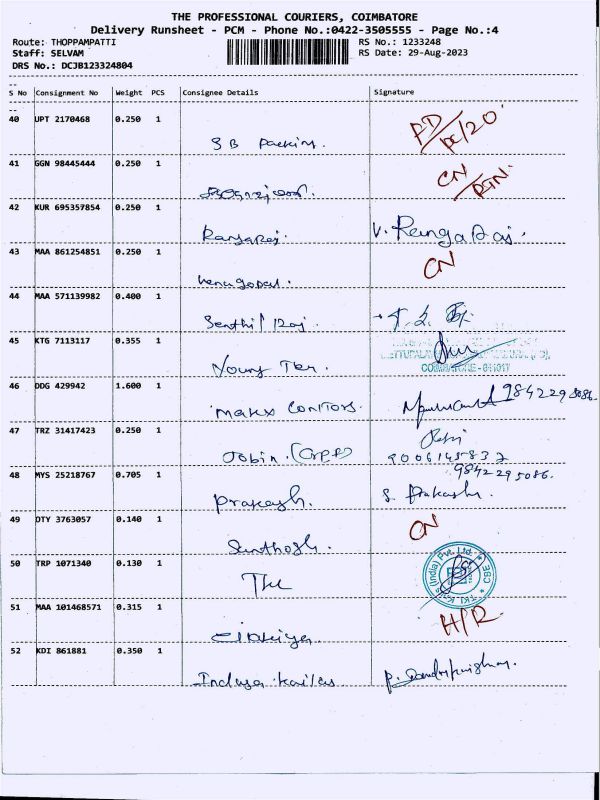 THE PROFESSIONAL COURIERS, COIMBATORE
Delivery Runsheet - PCM - Phone No.:0422-3505555 - Page No.:4
Route: THOPPAMPATTI RS No.: 1233248
Staff: SELVAM RS Date: 29-Aug-2023
DRS No.: DCJB123324804
S No Consignment No Weight PCS Consignee Details Signature
40 UPT 2170468 0.250 1
SB Packing.
41 GGN 98445444 0.250 1 CN
42 KUR 695357854 0.250 1
Rangaraj. V. Rangaraj.
43 MAA 861254851 0.250 1 CN
Venugopal.
44 MAA 571139982 0.400 1
Senthil Raj.
45 KTG 7113117 0.355 1
Young
46 DDG 429942 1.600 1 9842295086.
Makx
47 TRZ 31417423 0.250 1
Jobin.
48 MYS 25218767 0.705 1 9842295086.
Prakash. S. Prakash.
49 DTY 3763057 0.140 1 CN
Santhosh.
50 TRP 1071340 0.130 1 (India) Pvt. Ltd. CBE
51 MAA 101468571 0.315 1 H/R
52 KDI 861881 0.350 1